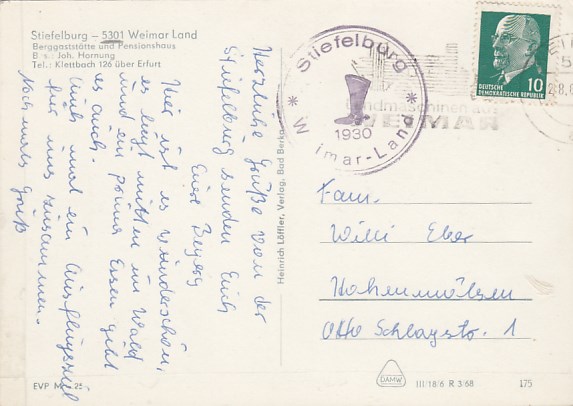 Stiefelburg – 5301 Weimar Land
Berggaststätte und Pensionshaus
Bes.: Joh. Hornung
Tel.: Klettbach 126 über Erfurt
Herzliche Grüße von der
Stiefelburg senden Euch
Eure
Hier ist es wunderschön,
es liegt mitten im Wald
und ein prima Essen gibt
es auch.
Auch mal ein Ausflugsziel
für uns zusammen.
Nochmals Gruß
EVP M
Heinrich Löffler, Verlag, Bad Berka
Stiefelburg
1930
* Weimar-Land *
Landmaschinen aus
WEIMAR
DEUTSCHE
DEMOKRATISCHE REPUBLIK
10
Fam.
Willi Eber
Hohenmölsen
Otto Schlagstr. 1
DAMW
III/18/6 R 3/68
175